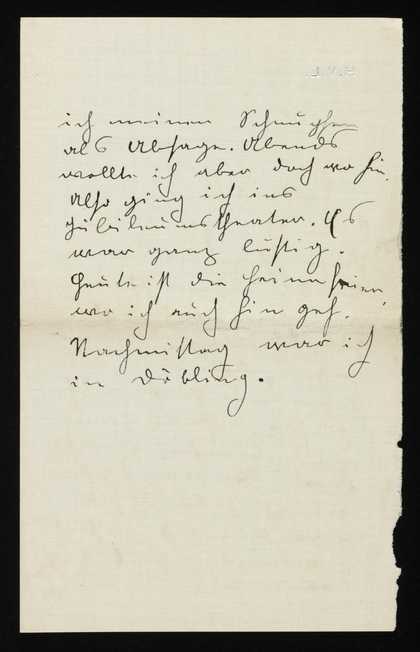 ich meinen Schnupfen
als Absage. Abends
wollte ich aber doch wo hin.
Also ging ich ins
Jubiläumstheater. Es
war ganz lustig.
Heute ist die
wo ich auch hin geh.
Nachmittag war ich
in Döbling.